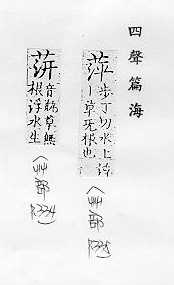 四聲篇海
萍
步丁切水上浮
丨草无根也
〈艸部
蓱
音瓶草無
根浮水生
〈艸部